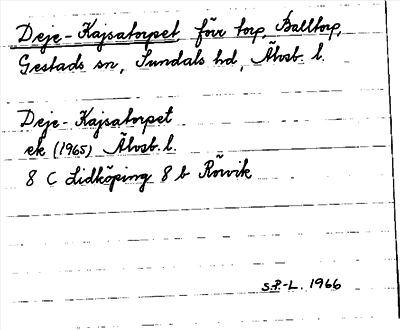 Deje-Kajsatorpet förr torp, Balltorp,
Gestads sn, Sundals hd, Älvsb. l.
Deje-Kajsatorpet
ek (1965) Älvsb. l.
8 C Lidköping 8 b Rörvik
S.P.-L. 1966